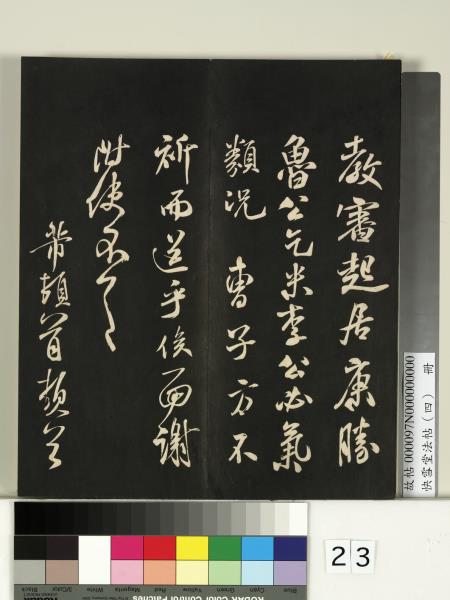 教審起居康勝
魯公乞米李公必氣
類況 曹子方不
祈而送乎俟面謝
附使不
芾頓首頓首
故帖 000097N000000000
快雪堂法帖（四） 冊
23
Kodak Color Control Patches
Blue
Cyan
Green
Yellow
Red
Magenta
White
3/Color
Black